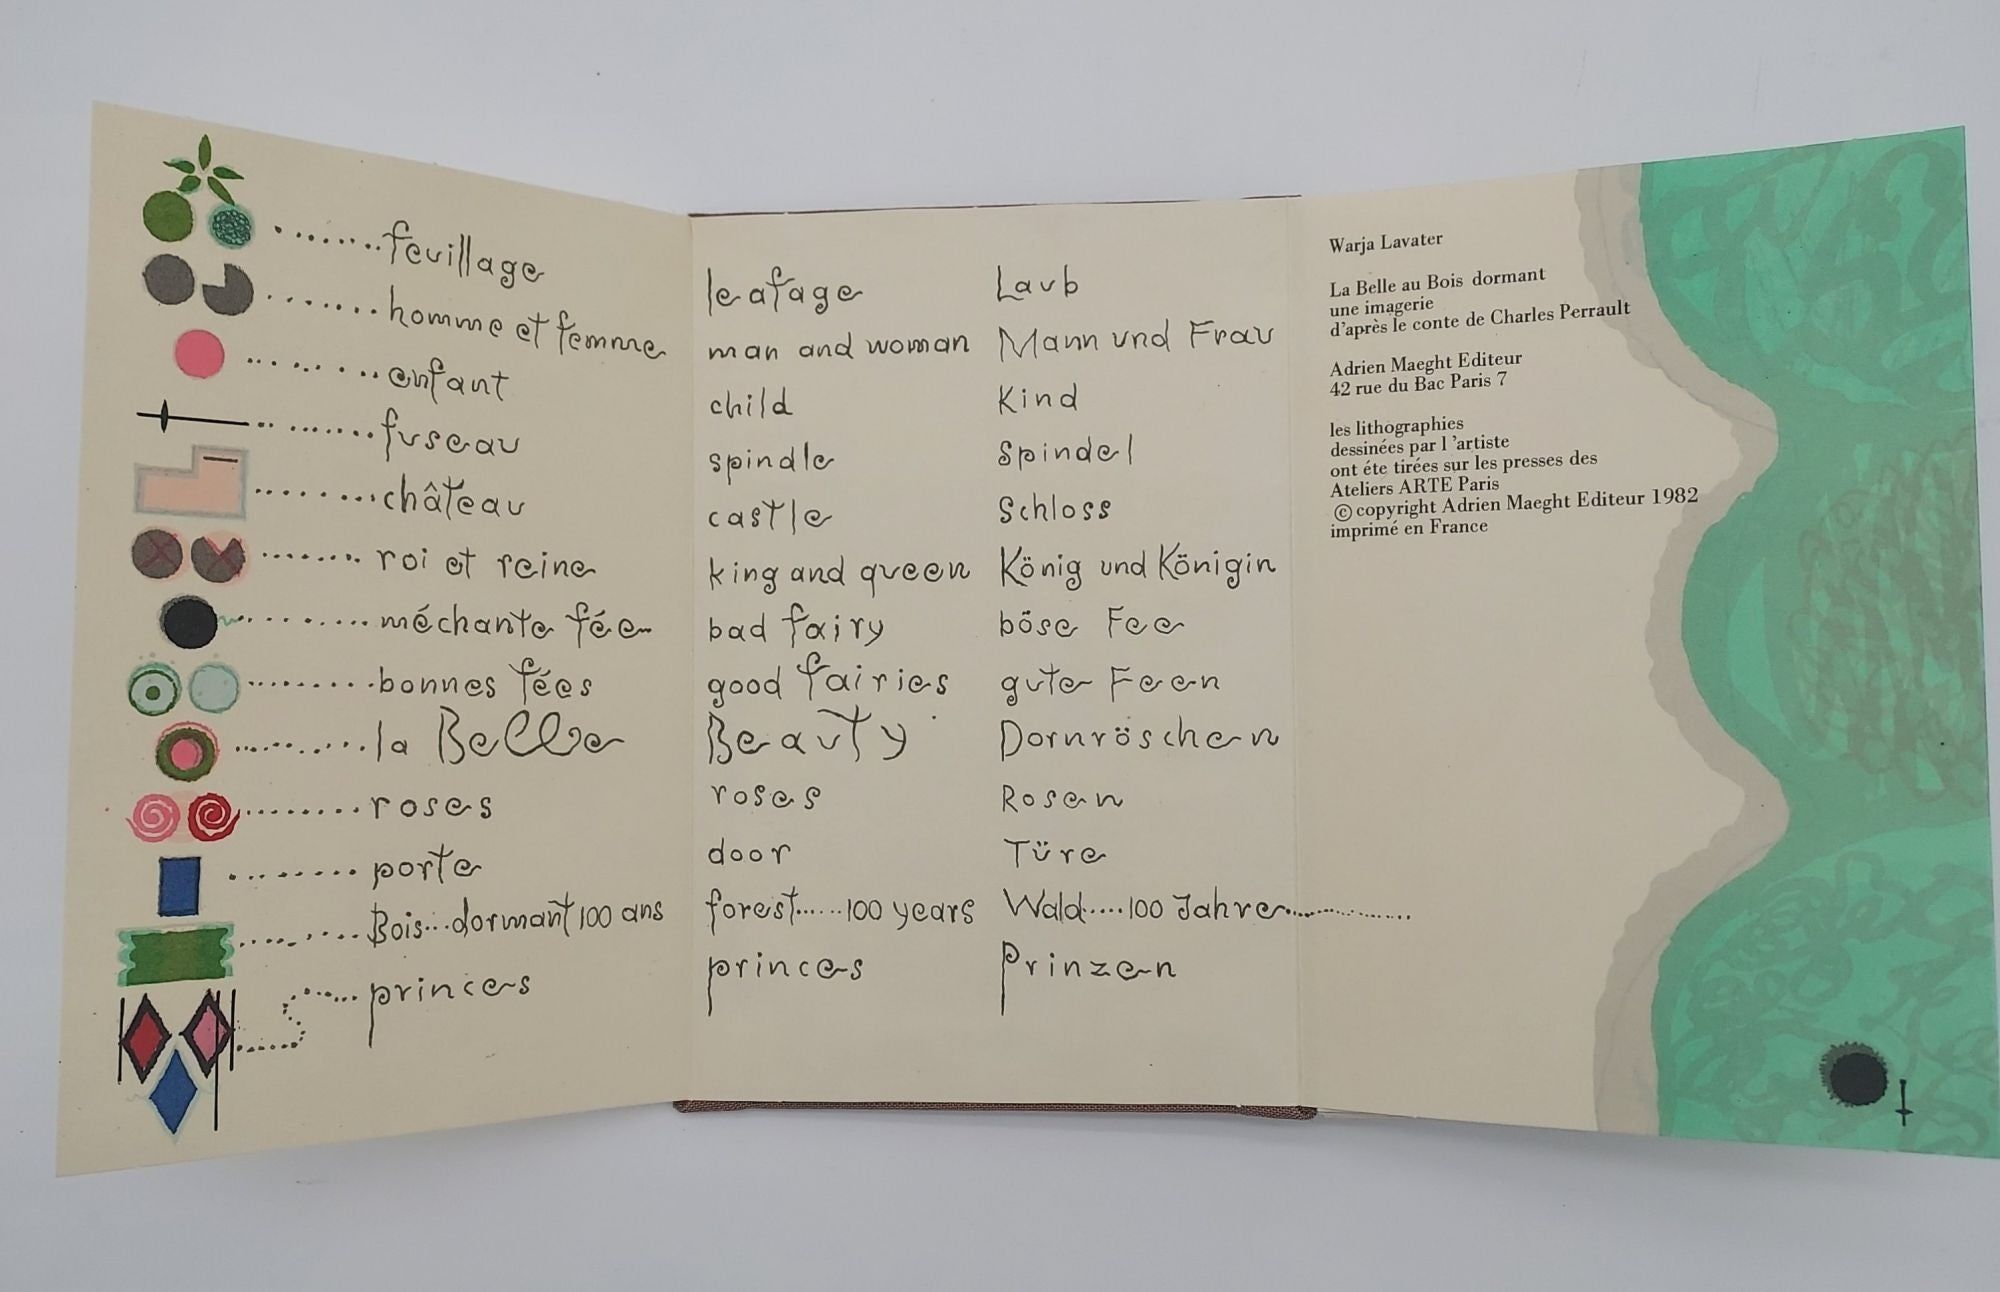 feuillage
homme et femme
enfant
fuseau
château
roi et reine
méchante fée
bonnes fées
la Belle
roses
porte
Bois...dormant 100 ans
princes
leafage
man and woman
child
spindle
castle
king and queen
bad fairy
good fairies
Beauty
roses
door
forest......100 years
princes
Laub
Mann und Frau
Kind
Spindel
Schloss
König und Königin
böse Fee
gute Feen
Dornröschen
Rosen
Türe
Wald.....100 Jahre
Prinzen
Warja Lavater
La Belle au Bois dormant
une imagerie
d'après le conte de Charles Perrault
Adrien Maeght Editeur
42 rue du Bac Paris 7
les lithographies
dessinées par l'artiste
ont éte tirées sur les presses des
Ateliers ARTE Paris
© copyright Adrien Maeght Editeur 1982
imprimé en France